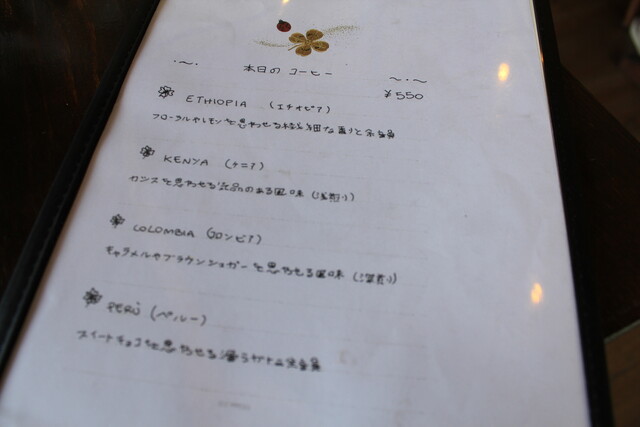 本日の コーヒー
¥550
ETHIOPIA (エチオピア)
フローラルやレモンを思わせる繊細な香りと余韻
KENYA (ケニア)
カシスを思わせる気品のある風味 (浅煎り)
COLOMBIA (コロンビア)
キャラメルやブラウンシュガーを思わせる風味 (深煎り)
PERU (ペルー)
スイートチョコを思わせる滑らかな余韻